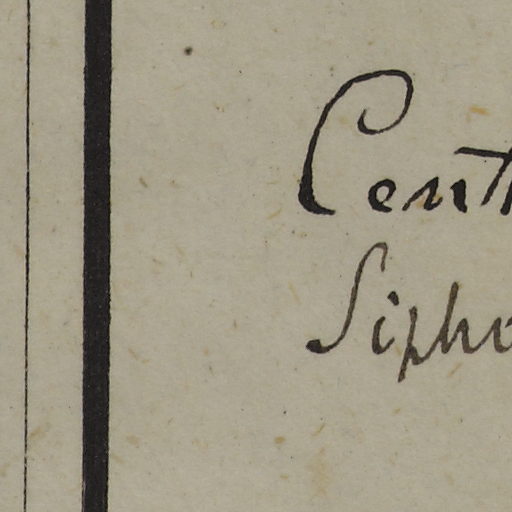 Cent
Sipho